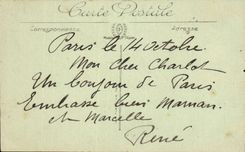 Carte Postale
Correspondance
Adresse
Paris le 14 octobre
Mon cher Charlot
Un bonjour de Paris
Embrasse bien Maman
et Marcelle
René